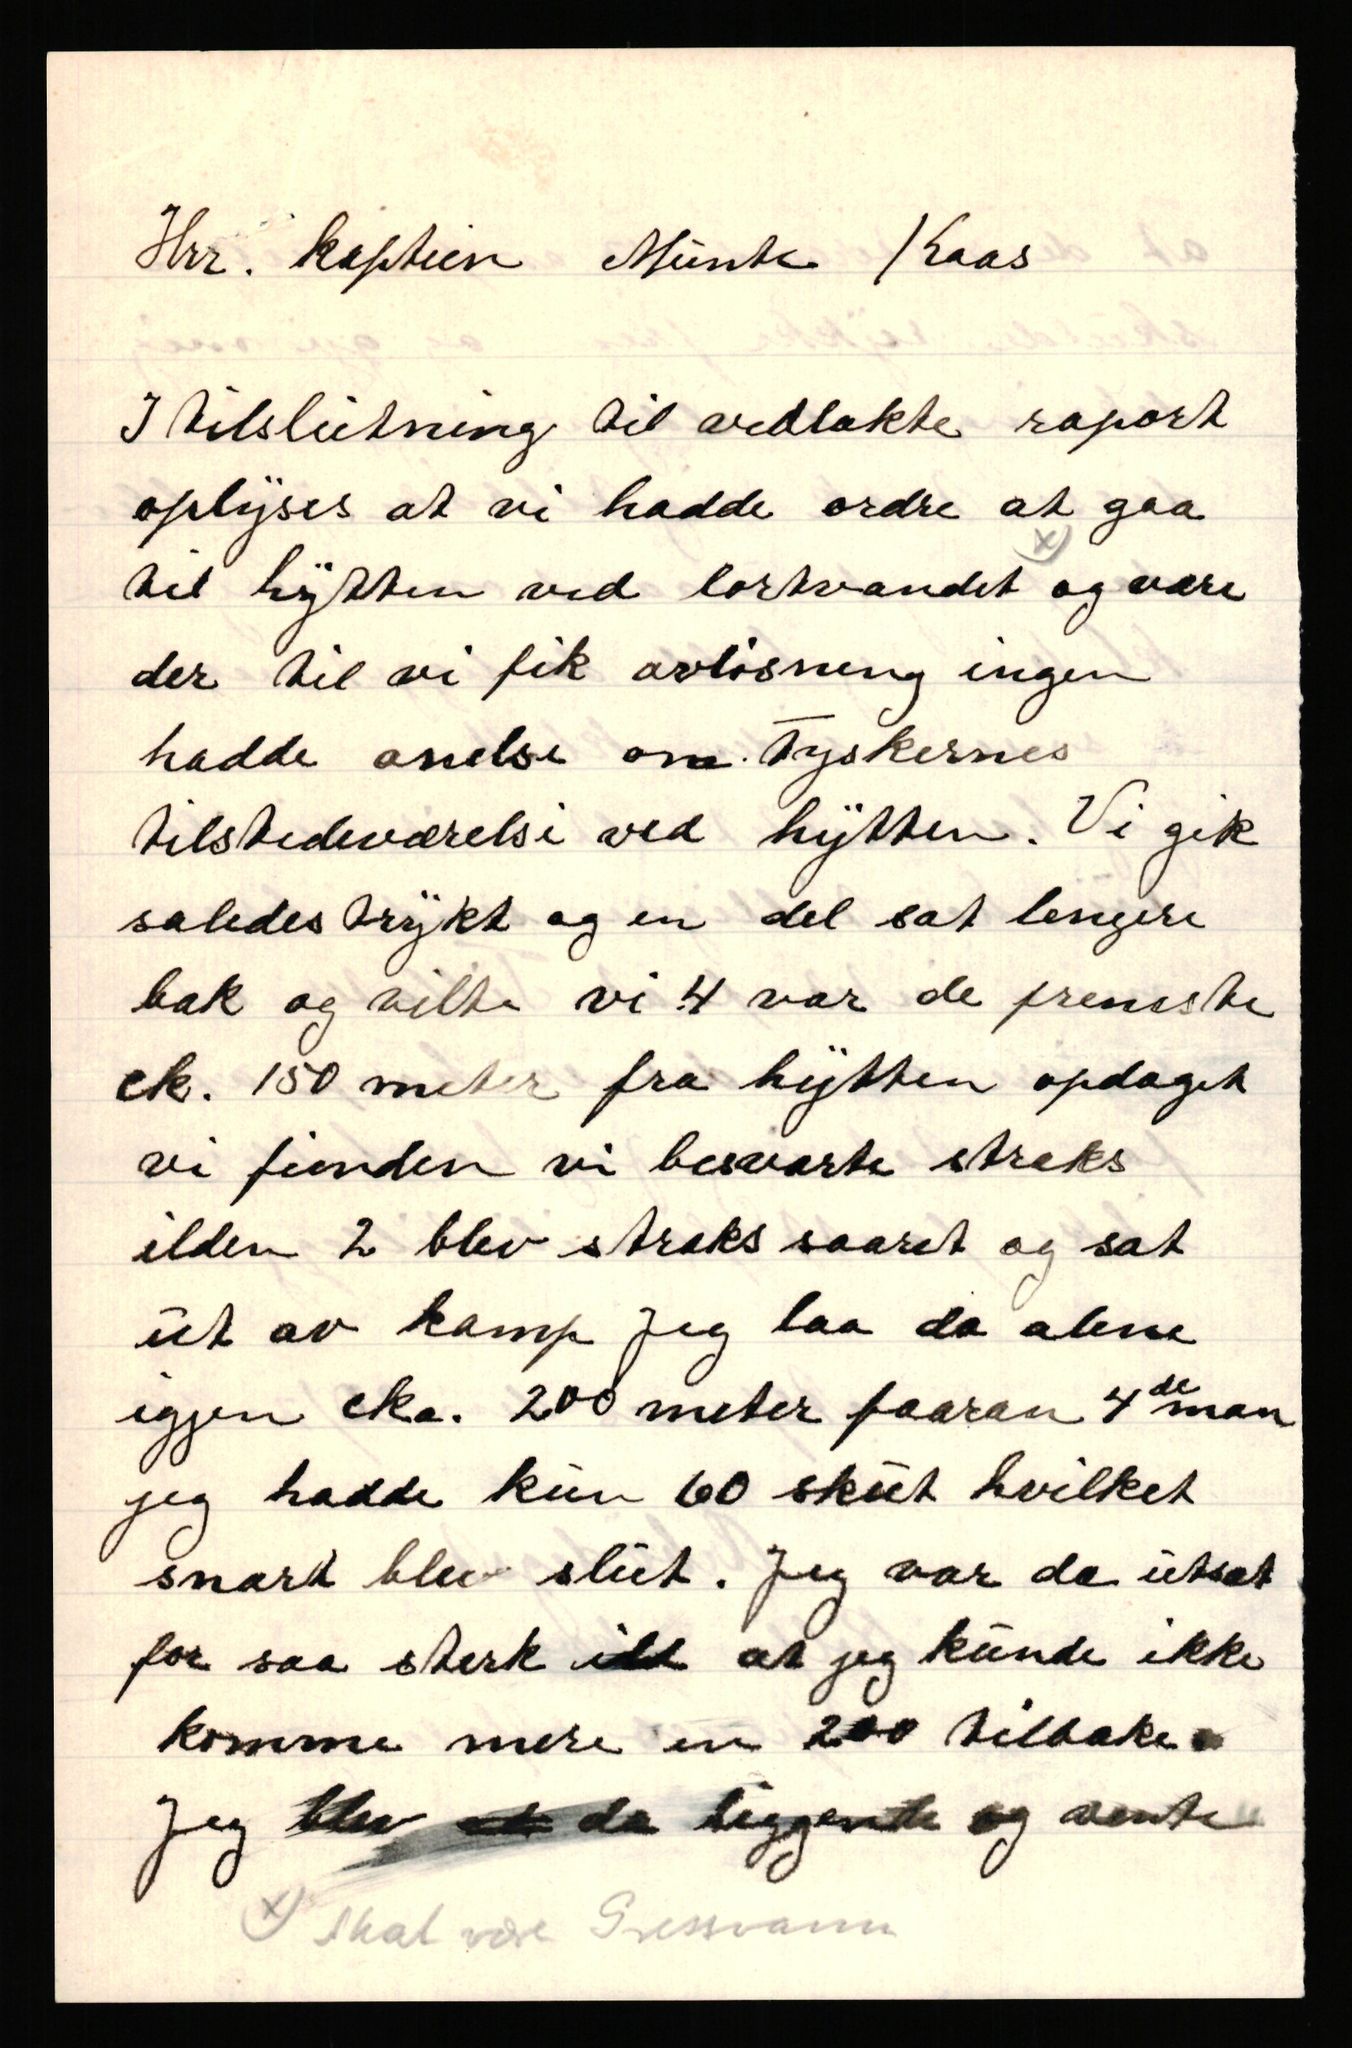 Hrr. kaptein Münte Kaas
I tilslütning til vedlakte raport
oplÿses at vi hadde ordre at gaa
til hÿtten ved lortvandet x) og være
der til vi fik avløsning ingen
hadde anelse om Tyskernes
tilstedeværelse ved hÿtten. Vi gik
saledes trÿkt og en del sat lengere
bak og vilte vi 4 var de fremste
ck. 150 meter fra hÿtten opdaget
vi fienden vi besvarte straks
ilden 2 blev straks saaret og sat
üt av kamp Jeg laa da alene
igjen cka. 200 meter foaran 4de man
jeg hadde kün 60 sküt hvilket
snart blev slüt. Jeg var da ütsat
for saa sterk ild at jeg künde ikke
komme mere en 200 tilbake.
Jeg blev da liggende og vente
x) skal være Gressvann